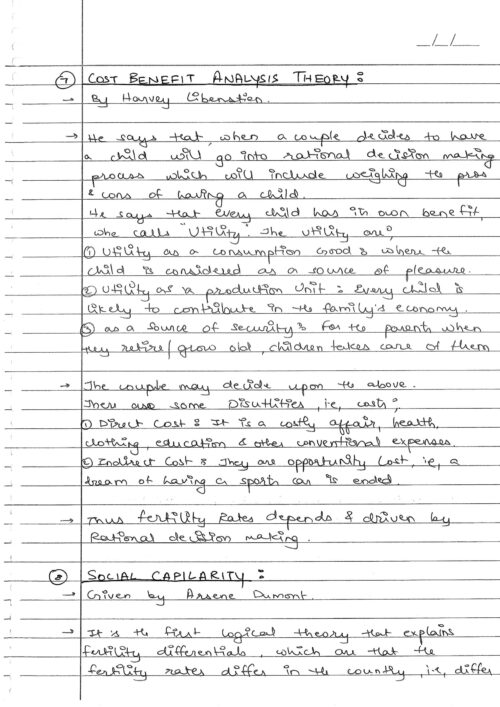 _/_/_
⑦ COST BENEFIT ANALYSIS THEORY :
→ By Harvey Libenstien.
→ He says that, when a couple decides to have
a child will go into rational decision making
process which will include weighing the pros
& cons of having a child.
He says that every child has its own benefit,
whe calls "Utility". The utility are :
① Utility as a consumption Good : where the
child is considered as a source of pleasure.
② Utility as a production Unit : Every child is
likely to contribute in the family's economy.
③ as a Source of security : For the parents when
they retire/grow old, children takes care of them
→ The couple may decide upon the above.
There are some Disutlities, i.e, costs :
① Direct Cost : It is a costly affair, health,
clothing, education & other conventional expenses.
② Indirect Cost : They are opportunity Cost, i.e, a
dream of having a sports car is ended.
→ Thus fertility Rates depends & driven by
Rational decision making.
⑧ SOCIAL CAPILARITY :
→ Given by Arsene Dumont.
→ It is the first logical theory that explains
fertility differentials, which are that the
fertility rates differ in the country, i.e, differ